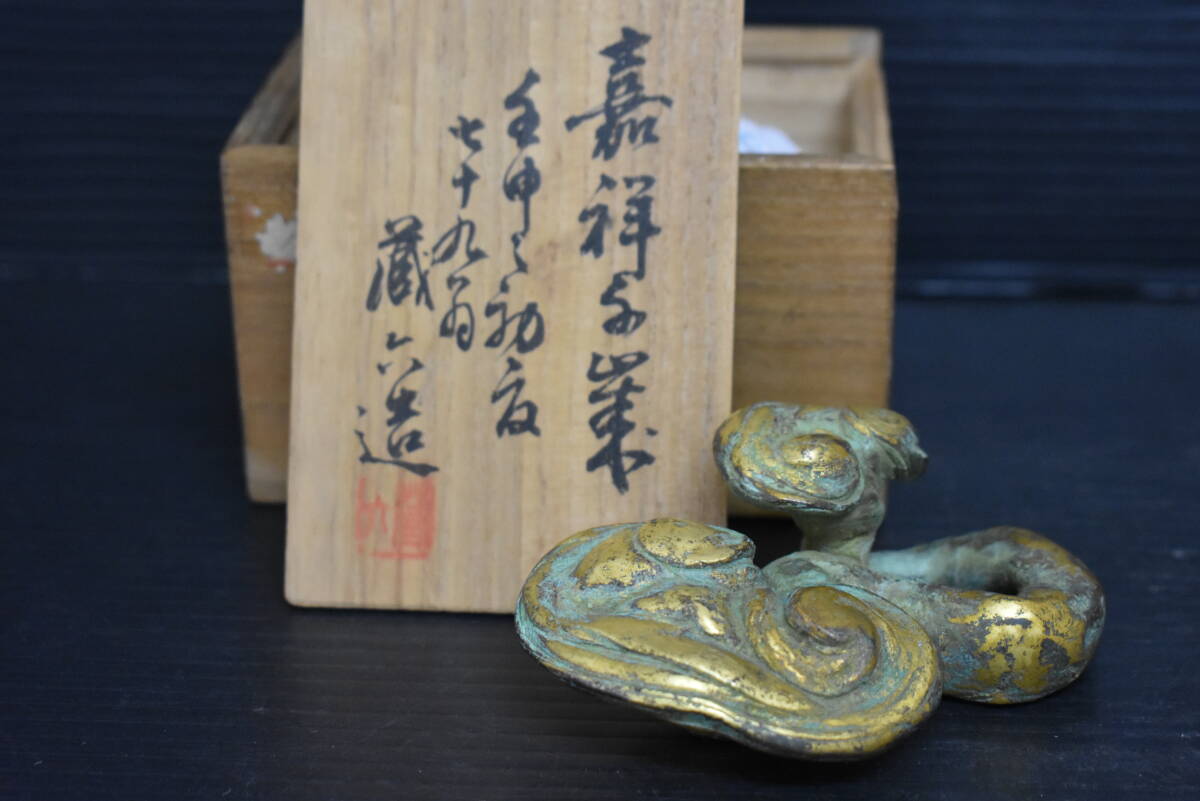 嘉祥
壬申之初夏
七十九翁
蔵六造